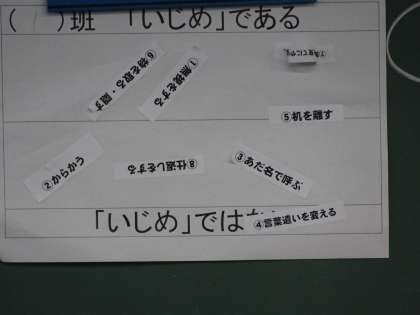 ( )班 「いじめ」である
⑥物を取る・隠す
①無視をする
⑤机を離す
②からかう
⑧仕返しをする
③あだ名で呼ぶ
「いじめ」では
④言葉遣いを変える